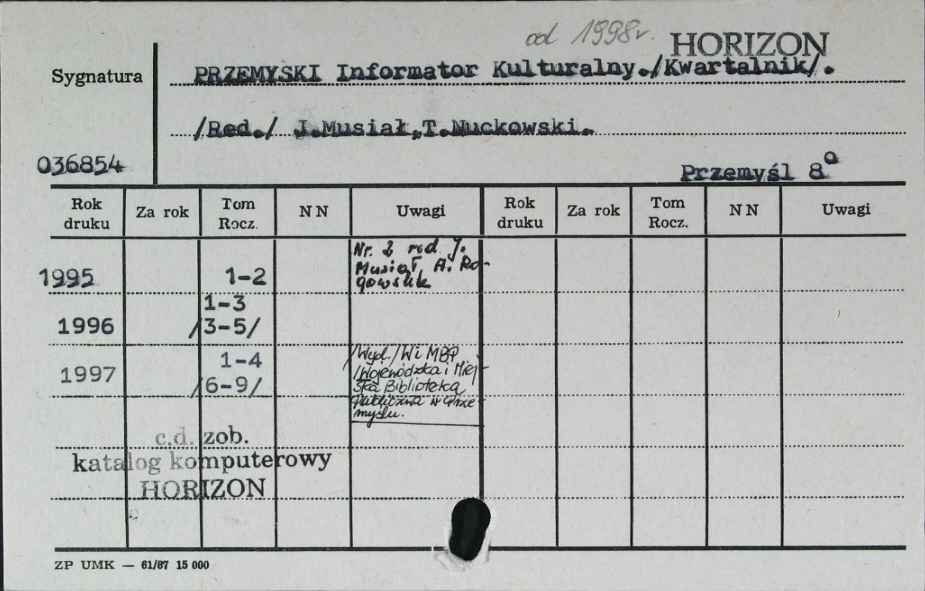 od 1998r. HORIZON
Sygnatura PRZEMYSKI Informator Kulturalny./Kwartalnik/.
/Red./ J.Musiał,T.Nuckowski.
036854 Przemyśl 8°
Rok druku Za rok Tom Rocz. NN Uwagi Rok druku Za rok Tom Rocz. NN Uwagi
Nr. 2 red J.
Musiał, A. Ro-
1995 1-2 gowska
1-3
1996 /3-5/
1-4 /Wyd./ WiMBP
1997 /Wojewódzka i Miej-
/6-9/ ska Biblioteka
Publiczna w Prze-
myślu.
c.d. zob.
katalog komputerowy
HORIZON
ZP UMK — 61/67 15 000